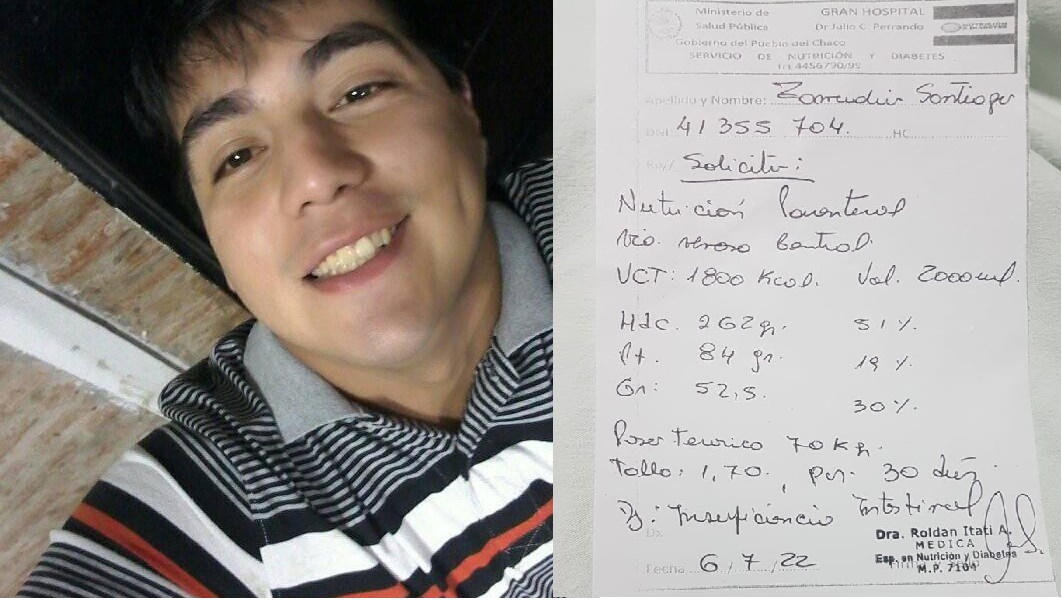 Ministerio de
Salud Pública
GRAN HOSPITAL
Dr Julio C. Perrando
Gobierno del Pueblo del Chaco
SERVICIO DE NUTRICIÓN Y DIABETES
Tel 4456790/99
Apellido y Nombre: Santiago
DNI 41 355 704. HC
Solicito:
Nutrición Parenteral
Vía venosa Central.
VCT: 1800 Kcal. Vol. 2000 ml.
Hdc. 262 gr. 51 %.
Pt. 84 gr. 19 %.
Gr: 52,5. 30 %.
Peso Teorico 70 Kg.
Talla: 1,70. por: 30 días.
D: Insuficiencia Intestinal
Dra. Roldan Itati A.
MEDICA
Esp. en Nutrición y Diabetes
M.P. 7104
Dx
Fecha 6, 7, 22